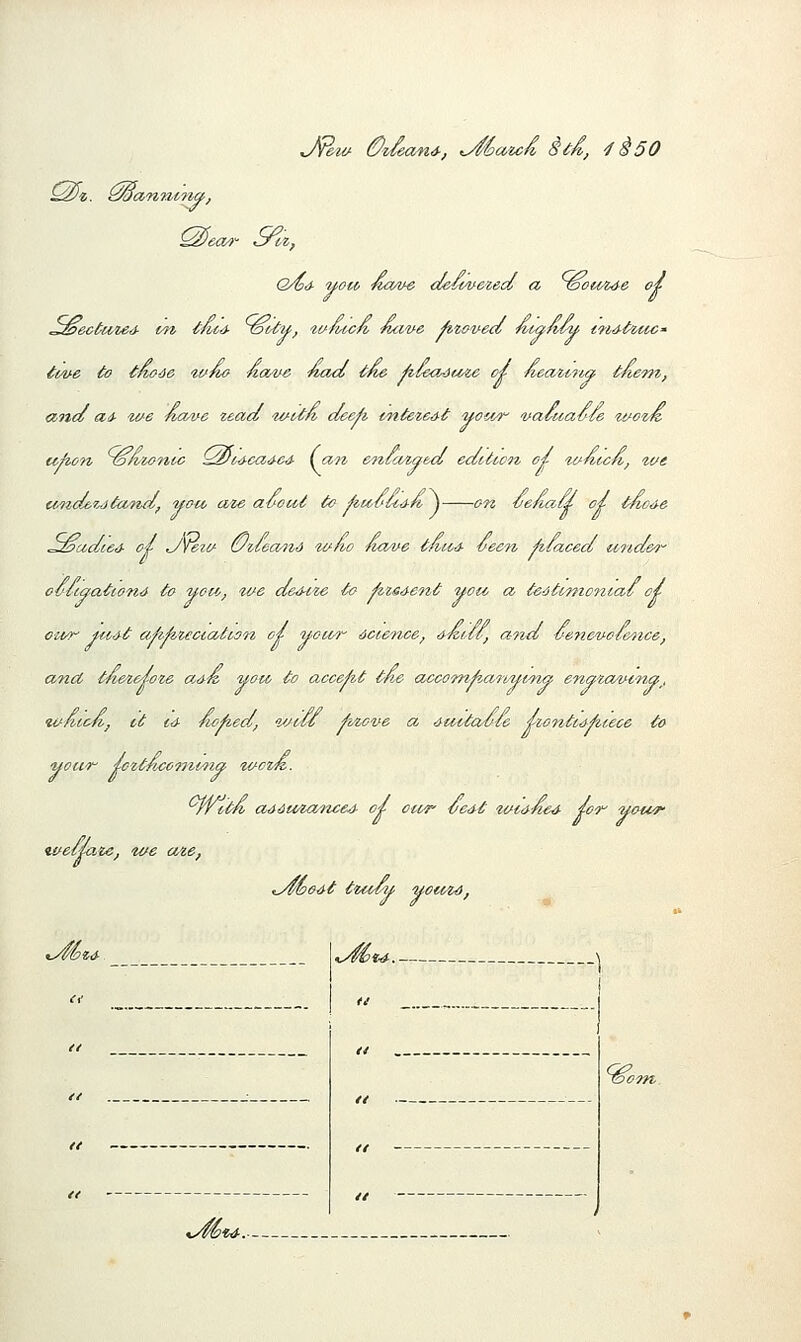 New Orleans, March 8th, 1850
Dr. Banning,
Dear Sir,
As you have delivered a Course of
Lectures in this City, which have proved highly instruc-
tive to those who have had the pleasure of hearing them,
and as we have read with deep interest your valuable work
upon Chronic Diseases (an enlarged edition of which, we
understand, you are about to publish)—on behalf of those
Ladies of New Orleans who have thus been placed under
obligations to you, we desire to present you a testimonial of
our just appreciation of your science, skill, and benevolence,
and therefore ask you to accept the accompanying engraving,
which, it is hoped, will prove a suitable frontispiece to
your forthcoming work.
With assurances of our best wishes for your
welfare, we are,
Most truly yours,
Mrs. Mrs.
" "
" "
Com.
" "
" "
" "
Mrs.